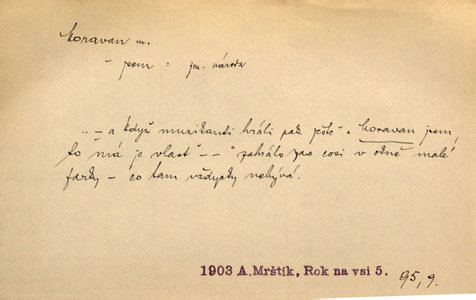 Moravan m.
– jsem : jm. národa
.. – a když muzikanti hráli pak ještě „Moravan jsem,
to má je vlast“ – – “ zahrálo zas cosi v okně malé
farky – co tam vždycky nebývá.
1903 A.Mrštík, Rok na vsi 5. 95,9.